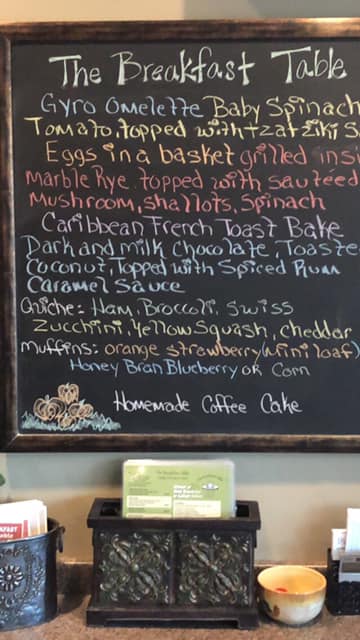 The Breakfast Table
Gyro Omelette Baby Spinach
Tomato, topped with tzatziki S
Eggs in a basket grilled ins
marble Rye, topped with sautéed
Mushroom, shallots, Spinach
Caribbean French Toast Bake
Dark and milk Chocolate, Toaste
Coconut, Topped with Spiced Rum
Caramel Sauce
Quiche: Ham, Broccoli, Swiss
Zucchini, Yellow Squash, cheddar
Muffins: orange strawberry (mini loaf)
Honey Bran Blueberry or Corn
Homemade Coffee Cake